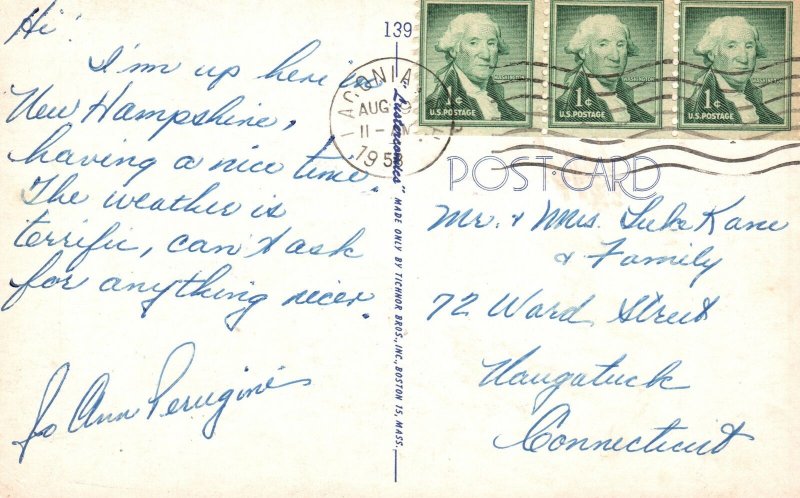 Hi!
I'm up here in
New Hampshire,
having a nice time.
The weather is
terrific, can't ask
for anything nicer.
Jo Ann Perugini
139
"Lusterchrome" MADE ONLY BY TICHNOR BROS., INC., BOSTON 15, MASS.
LACONIA
AUG
11-
195
WASHINGTON
1¢
U.S. POSTAGE
WASHINGTON
1¢
U.S. POSTAGE
WASHINGTON
1¢
U.S. POSTAGE
POST CARD
Mr. & Mrs. Luke Kane
& Family
72 Ward Street
Naugatuck
Connecticut